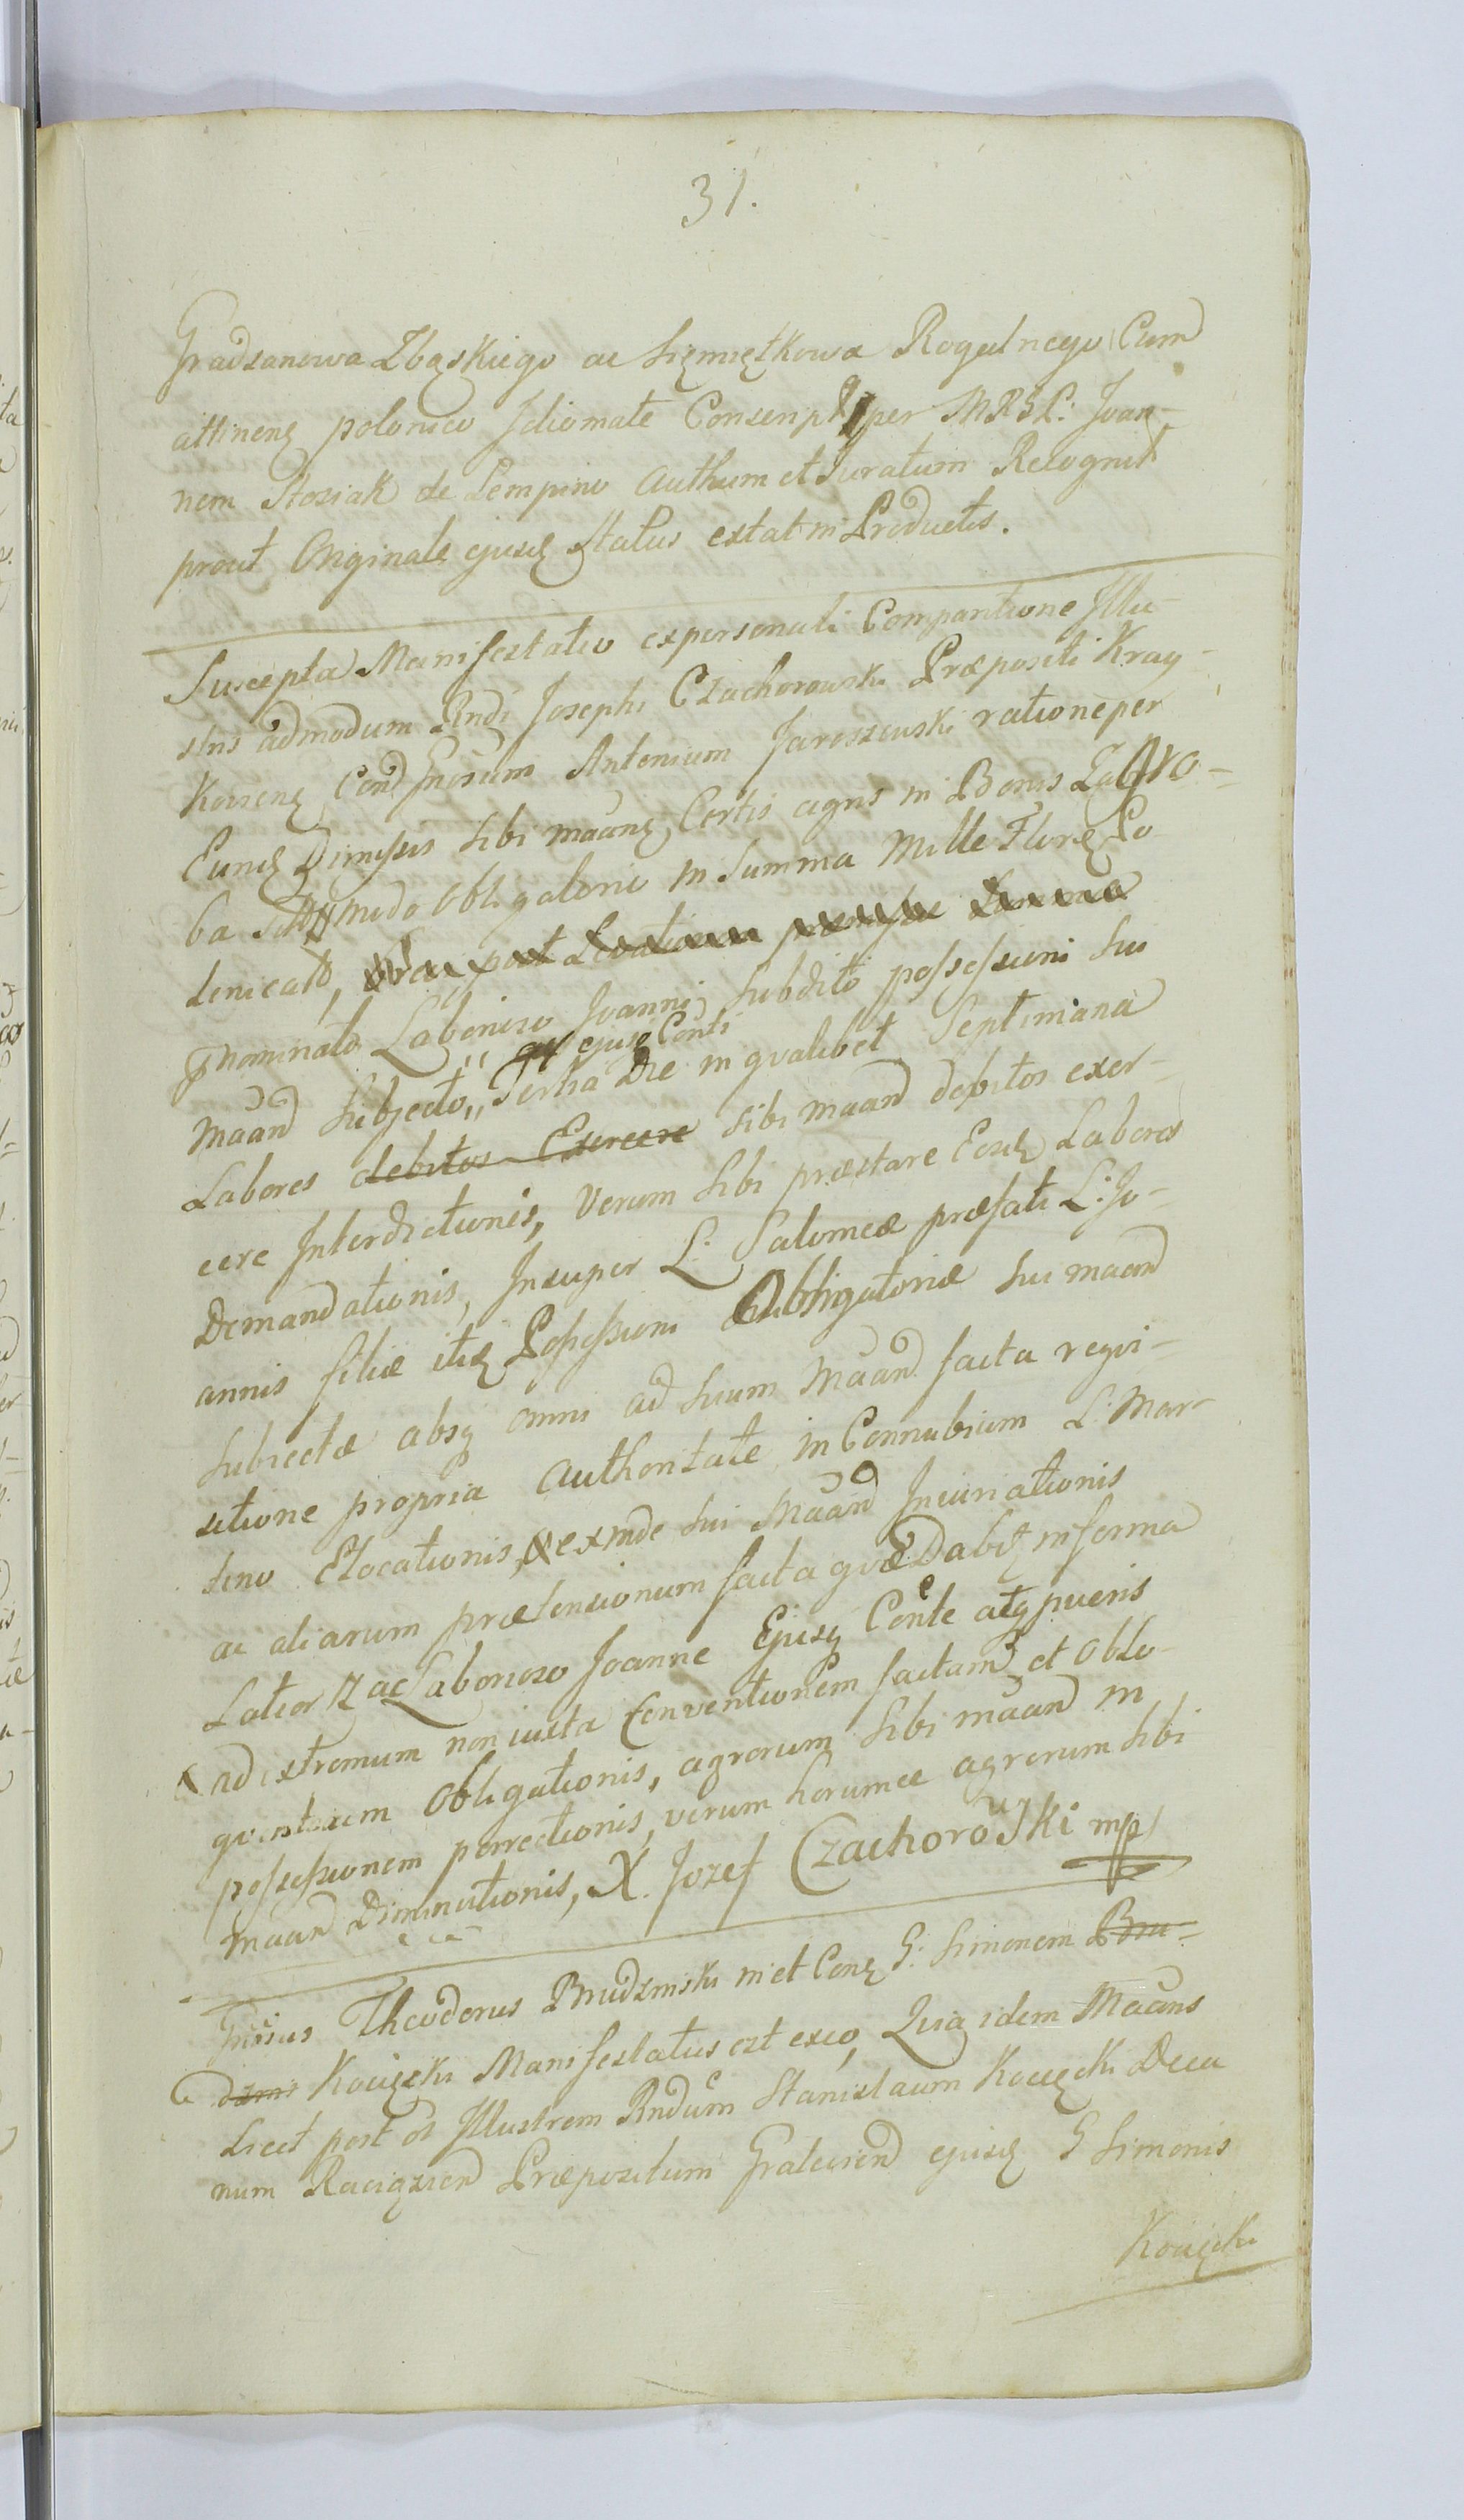 31.
Gradzanowa Zbąskiego ac Siemiętkowa Rogalnego Cum
attinenę polonico Idiomate Conscript per M R S L: Joan¬
nem Stosiak de Lempino Authum et Juratum Recognit
prout Originale ejusdę Status extat in Productis.
Suscepta Manifestatio ex personali Comparitione Illu¬
stris admodum Rndi Josephi Czachorowski Præpositi Kray¬
Kovienę Con Gnosum Antonium Jaroszewski ratione per
Eundę Dimissis sibi maanę Certis agris in Bonis Zabro¬
ba modo obligatorio in Summa Mille Florę Po
lonicalõ, post Levationem præmissæ Summæ
pnominato Laborioso Joanni Subdito possessioni suo
maand Subjecto,, Tertia Die in qvalibet Septimana
,, ejusq Conti
Labores debitos Exercere sibi maand debitos exer¬
cere Interdictionis, Verum Sibi præstare Eosdę Labores
Demandationis, Insuper L: Salomeæ præfati L: Jo¬
annis filiæ itidę Possessioni Obligatoriæ sui maand
Subiectæ absq omni ad Suum Maand facta reqvi¬
sitione propria Authoritate in Connubium L: Mar¬
tino Elocationis, exinde Sui Maand Iniuriationis
ac aliarum prætensionum facta qvæ Dabitę in forma
Latior ac Laborioso Joanne Ejusq Conte atq pueris
ad extremum non iuxta Conventionem factam et oblo¬
qventiam Obligationis, agrorum Sibi maand in
possessionem porrectionis, verum horumce agrorum sibi
maand Diminutionis, X. Jozef Czachorowski mp
Gnosus Theodorus Brudzinski in et Conę G: Simonem Bru¬
dzins Kocięcki Manifestatus est exeo, Qvia idem Maans
Licet post õl Illustrem Rndum Stanislaum Kocięcki Deca
num Raciązien Præpositum Gralevien ejusdę G Simonis
Kocięcki